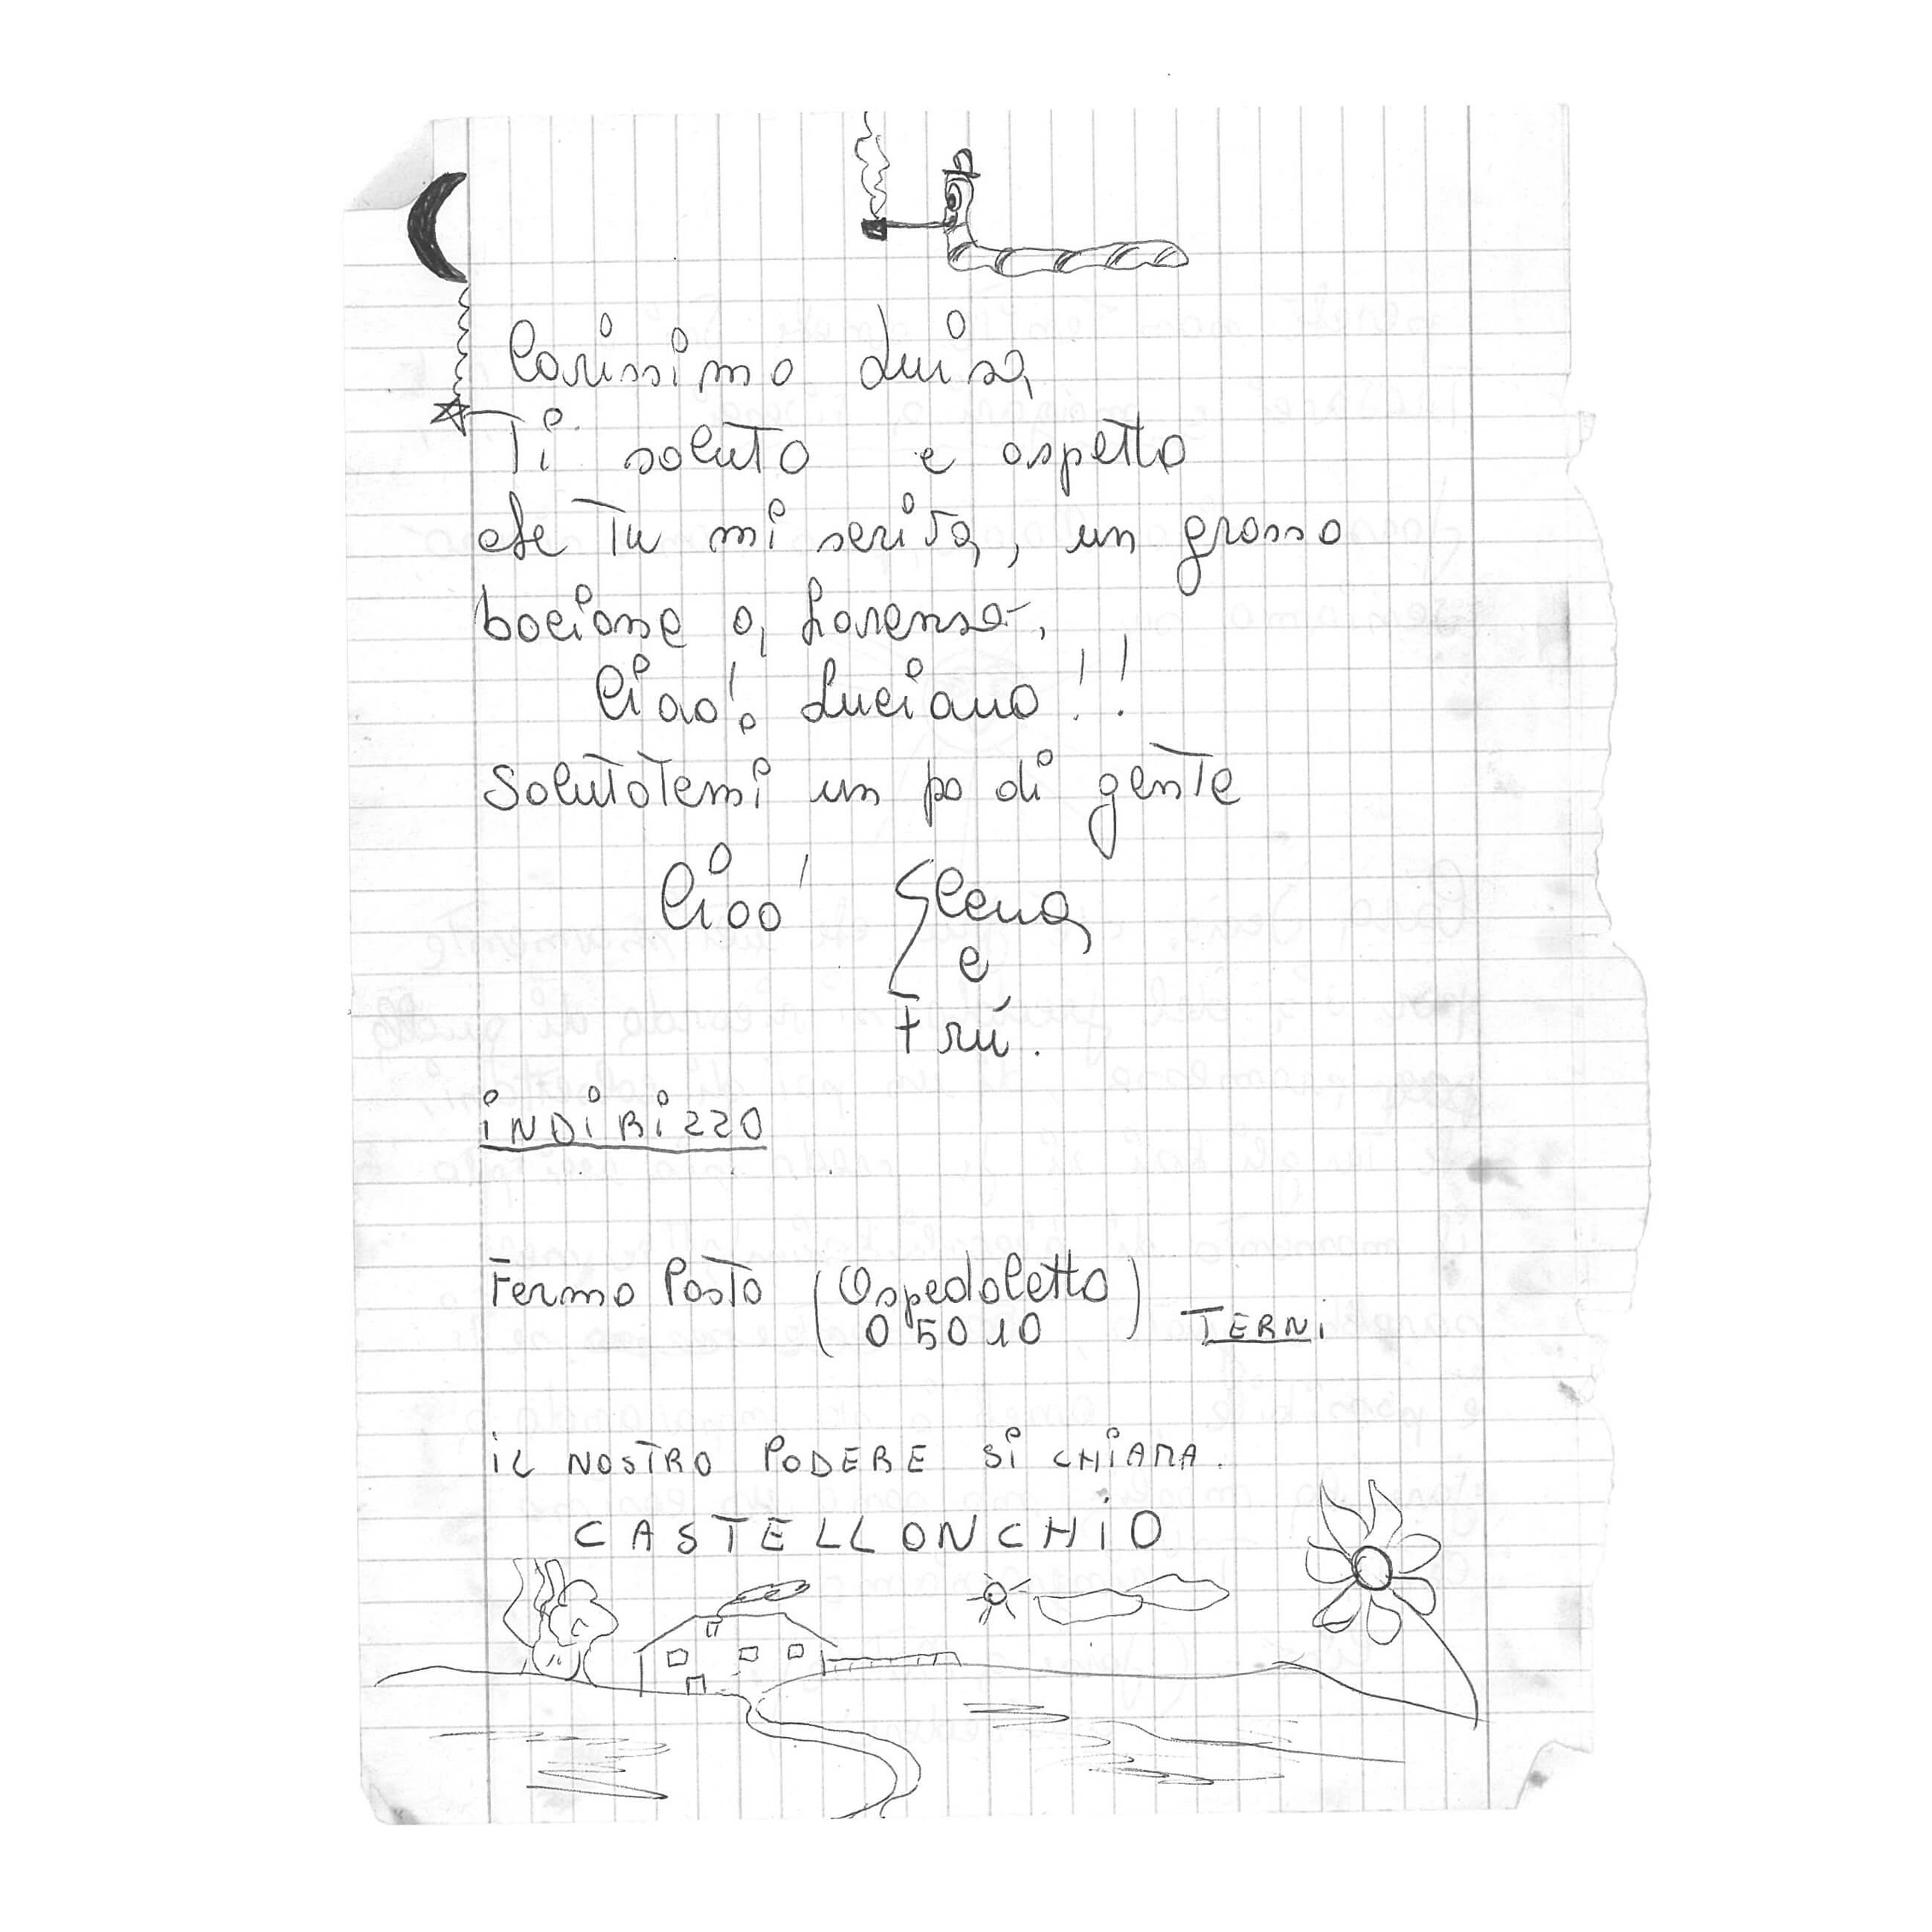 Carissima Luisa
Ti saluto e aspetto
che tu mi scriva, un grosso
bacione a Lorenzo,
Ciao! Luciano!!
Salutatemi un po di gente
Ciao' Elena
e
Frú.
iNDiRiZZO
Fermo Posta (Ospedaletto)
05010 TERNi
iL NOSTRO PODERE Si CHiAMA.
CASTELLONCHiO